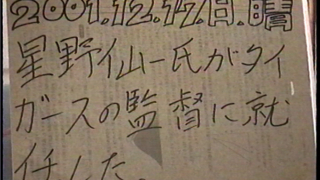 2001.12.17.月.晴
星野仙一氏がタイ
ガースの監督に就
任した。